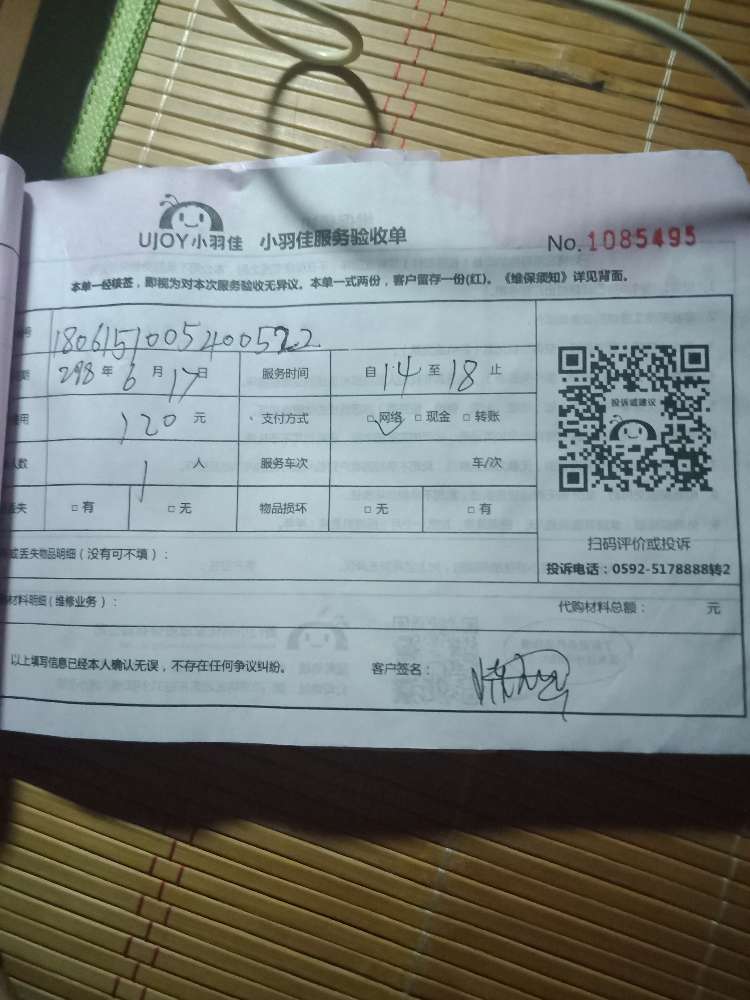 UJOY小羽佳 小羽佳服务验收单 No. 1085495
本单一经核签，即视为对本次服务验收无异议。本单一式两份，客户留存一份(红)。《维保须知》详见背面。
号 1806151005400522
年 6 月 17 日 服务时间 自 14 至 18 止
用 120 元 支付方式 □网络 □现金 □转账
人数 1 人 服务车次 车/次
丢失 □有 □无 物品损坏 □无 □有
投诉或建议
扫码评价或投诉
投诉电话：0592-5178888转2
或丢失物品明细（没有可不填）：
材料明细（维修业务）： 代购材料总额： 元
以上填写信息已经本人确认无误，不存在任何争议纠纷。 客户签名：